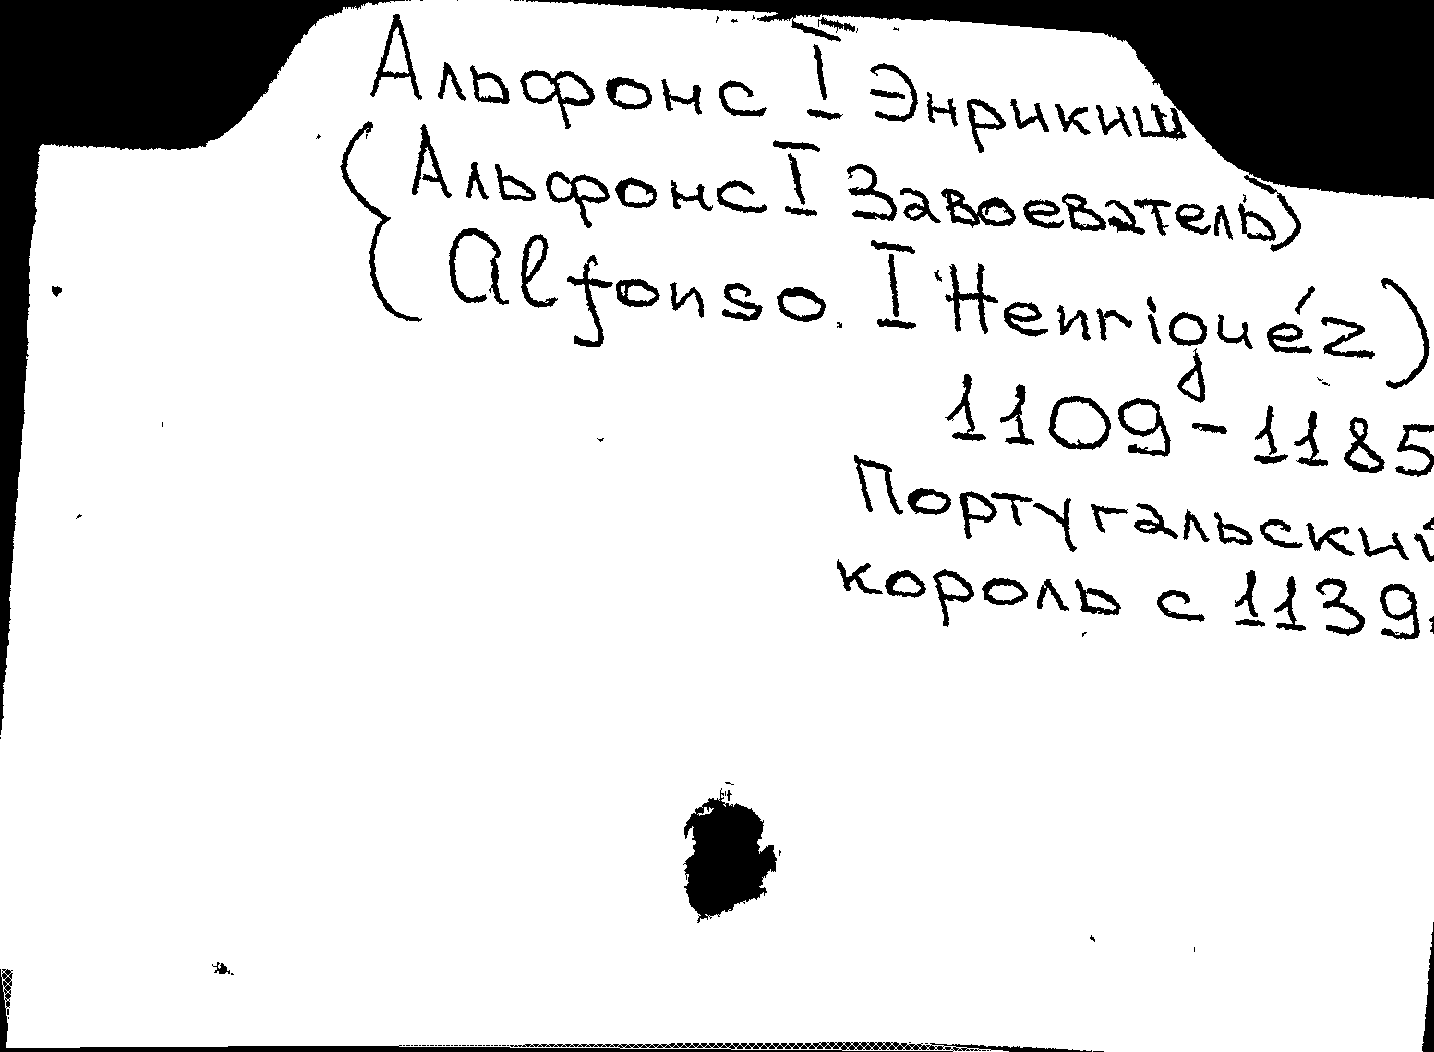 Альфонс I Энрикиш
(Альфонс I Завоеватель)
(Alfonso I Henriquéz)
1109-1185
Португальский
король с 1139.